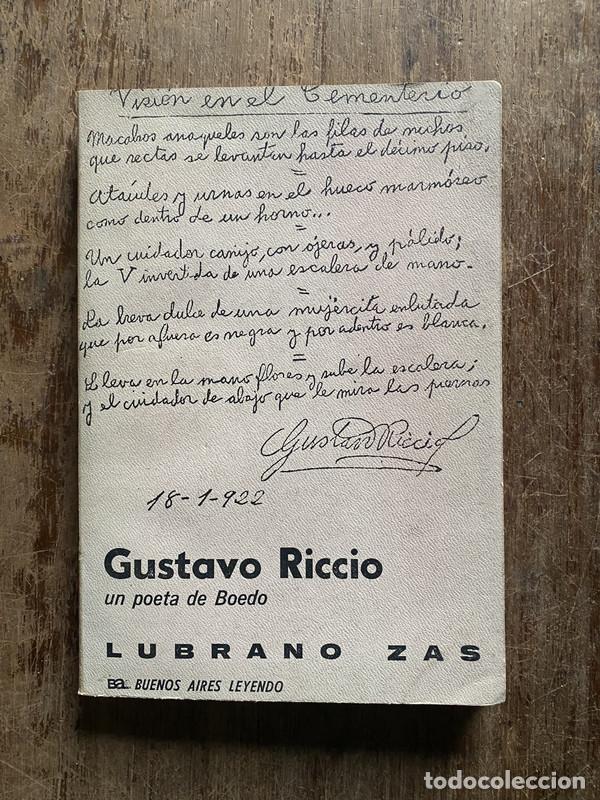 Visión en el Cementerio
Macabros anaqueles son las filas de nichos
que rectas se levantan hasta el décimo piso.
=
Ataúdes y urnas en el hueco marmóreo
como dentro de un horno...
=
Un cuidador canijo, con ojeras, y pálido;
la V invertida de una escalera de mano.
=
La breva dulce de una mujercita enlutada
que por afuera es negra y por adentro es blanca.
=
Lleva en la mano flores y sube la escalera;
y el cuidador de abajo que le mira las piernas
Gustavo Riccio
18-1-922
Gustavo Riccio
un poeta de Boedo
LUBRANO ZAS
BAL BUENOS AIRES LEYENDO
todocoleccion.net